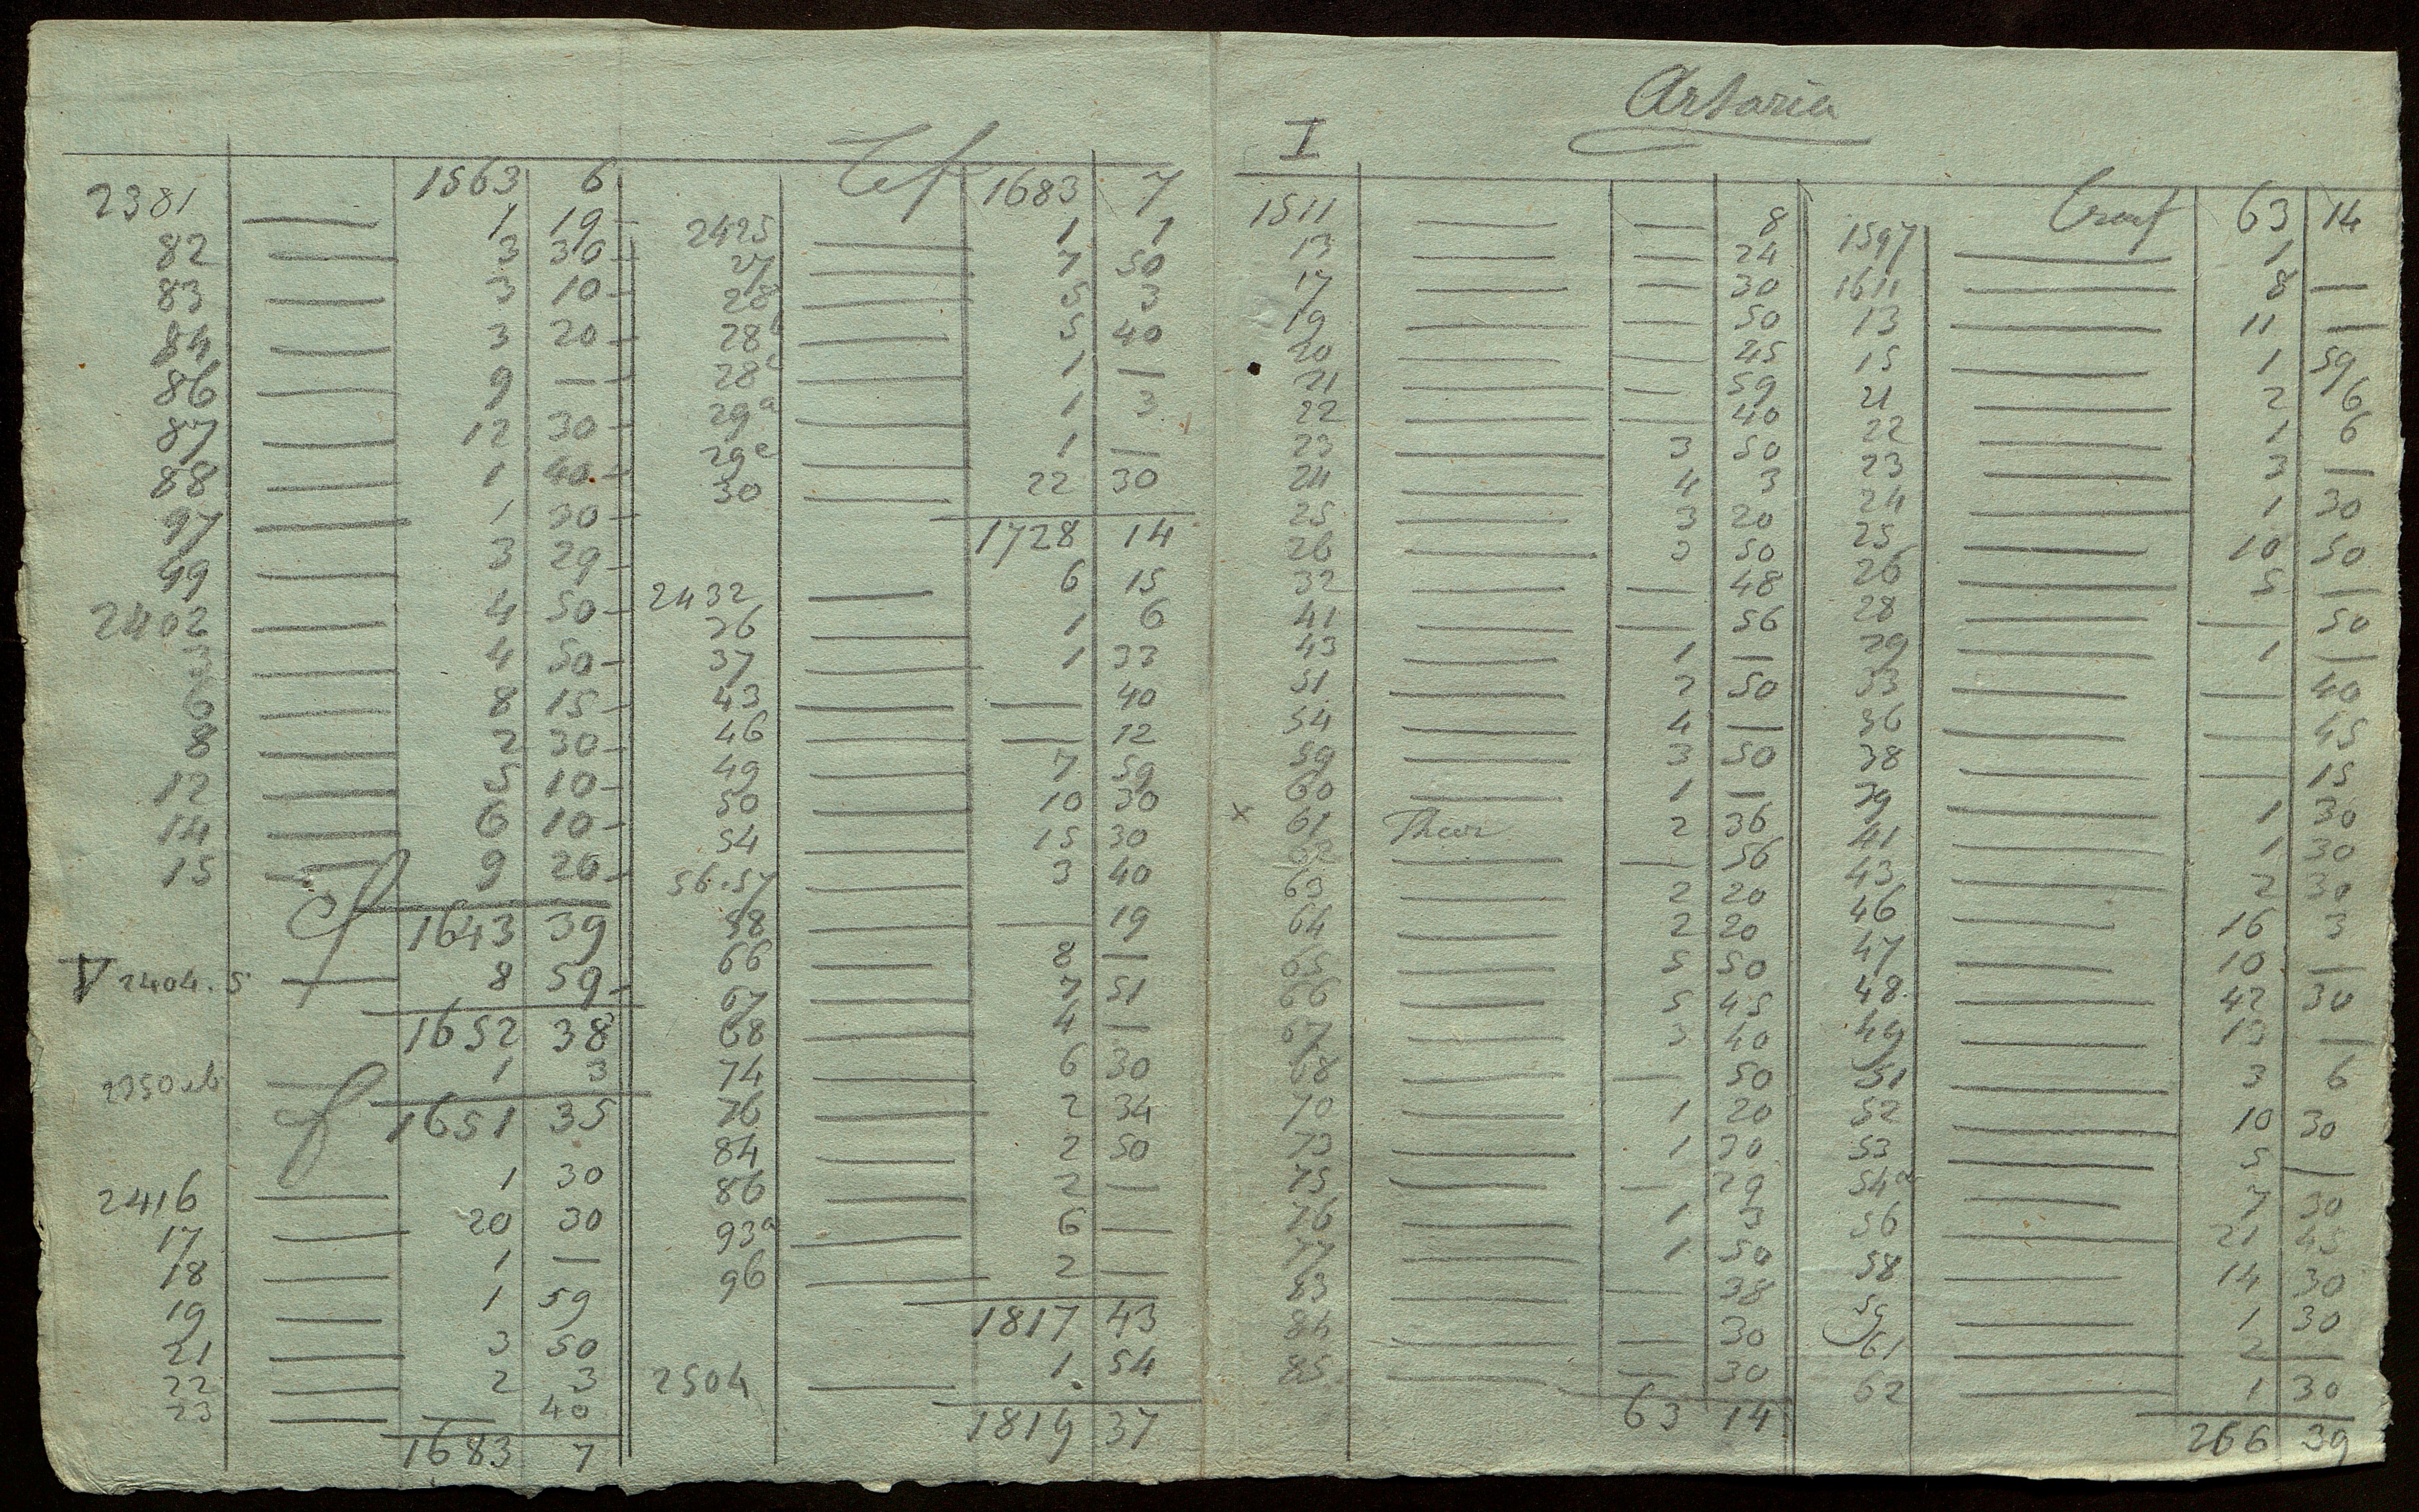 1563 6
2381 — 1 19 –
82 — 3 30 –
83 — 3 10 –
84 — 3 20 –
86 — 9 — –
87 — 12 30 –
88 — 1 40 –
97 — 1 30 –
99 — 3 29 –
2402 — 4 50 –
3 — 4 50 –
6 — 8 15 –
8 — 2 30 –
12 — 5 10 –
14 — 6 10 –
15 — 9 20 –
1643 39
2404.5 — 8 59 –
1652 38
2350 — 1 3
1651 35
2416 — 1 30
17 — 20 30
18 — 1 —
19 — 1 59
21 — 3 50
22 — 2 3
23 — — 40
1683 7
1683 7
2425 — 1 1
27 — 7 50
28 — 5 3
28b — 5 40
28c — 1 —
29a — 1 3
29c — 1 —
30 — 22 30
1728 14
2432 — 6 15
36 — 1 6
37 — 1 33
43 — — 40
46 — — 12
49 — 7 59
50 — 10 30
54 — 15 30
56.57 — 3 40
58 — — 19
66 — 8 —
67 — 7 51
68 — 4 —
74 — 6 30
76 — 2 34
84 — 2 50
86 — 2 —
93a — 6 —
96 — 2 —
1817 43
2504 — 1 54
1819 37
Artaria
I
1511 — — 8
13 — — 24
17 — — 30
19 — — 50
20 — — 45
21 — — 59
22 — — 40
23 — 3 50
24 — 4 3
25 — 3 20
26 — 3 50
32 — — 48
41 — — 56
43 — 1 —
51 — 2 50
54 — 4 —
59 — 3 50
60 — 1 —
× 61 2 36
62 — — 56
63 — 2 20
64 — 2 20
65 — 5 50
66 — 5 45
67 — 3 40
68 — — 50
70 — 1 20
73 — 1 30
75 — — 29
76 — 1 3
77 — 1 50
83 — — 38
84 — — 30
85 — — 30
63 14
63 14
1597 — 1
1611 — 8 —
13 — 11 —
15 — 1 59
21 — 2 6
22 — 1 6
23 — 3 —
24 — 1 30
25 — 10 50
26 — 5 —
28 — — 50
29 — 1 —
33 — — 40
36 — — 45
38 — — 15
39 — 1 30
41 — 1 30
43 — 2 30
46 — 16 3
47 — 10 —
48 — 42 30
49 — 13 —
51 — 3 6
52 — 10 30
53 — 5 —
54a — 7 30
56 — 21 45
58 — 14 30
59 — 1 30
61 — 2 —
62 — 1 30
266 39